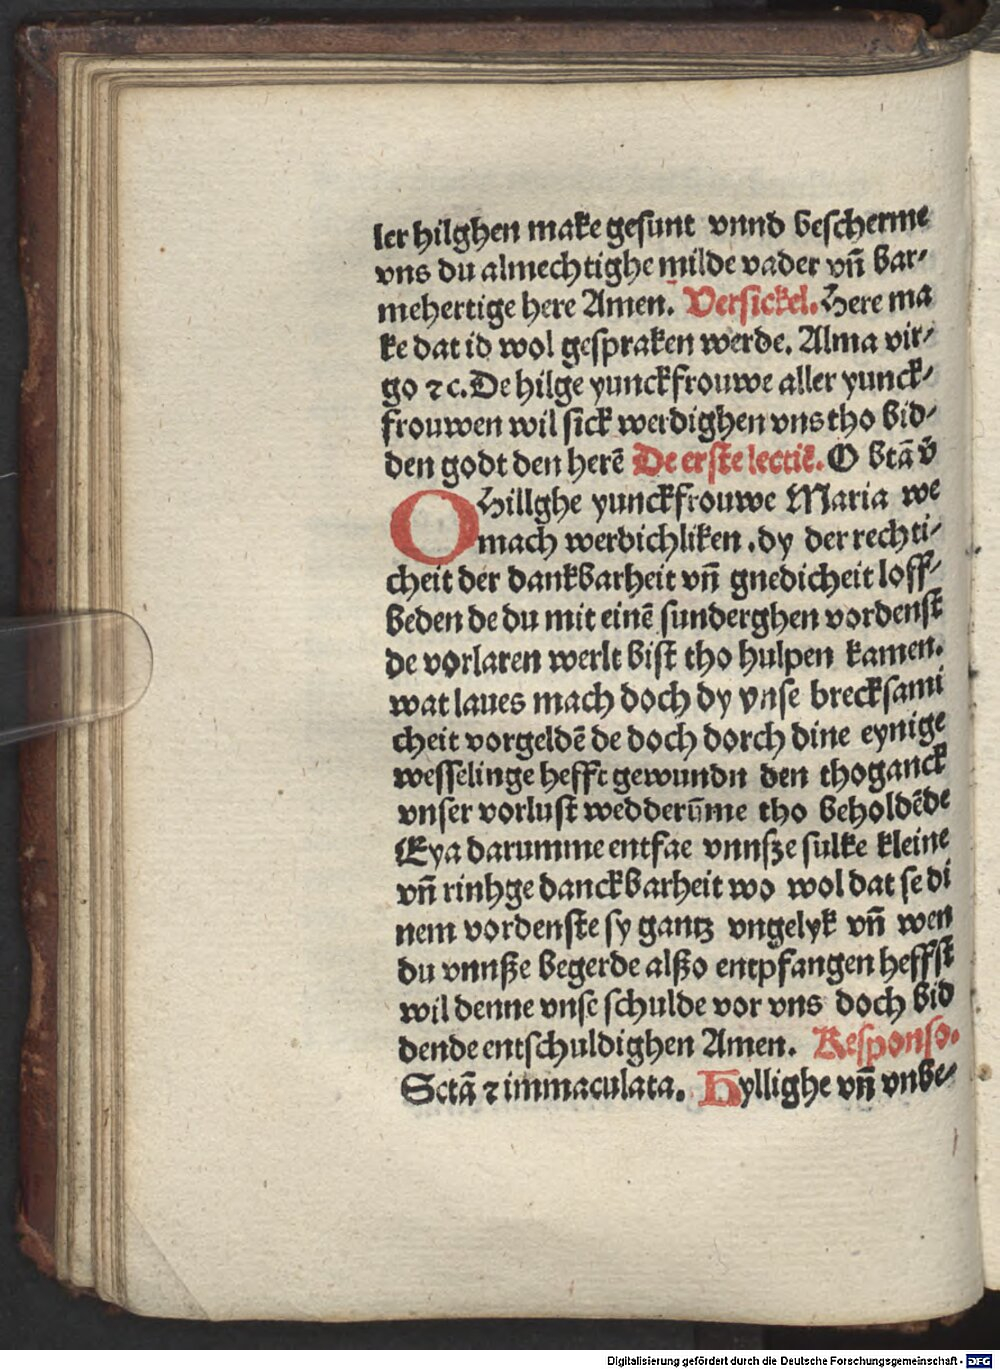 ler hilghen make gesunt vnnd bescherme
vns du almechtighe milde vader vñ bar⸗
mehertige here Amen. Versickel. Here ma
ke dat id wol gespraken werde. Alma vir⸗
go ⁊c. De hilge yunckfrouwe aller yunck⸗
frouwen wil sick werdighen vns tho bid⸗
den godt den herē De erste lectiē. O btā v̄
O Hillghe yunckfrouwe Maria we
mach werdichliken .dy der rechti⸗
cheit der dankbarheit vñ gnedicheit loff⸗
beden de du mit einē sunderghen vordenst
de vorlaren werlt bist tho hulpen kamen.
wat laues mach doch dy vnse brecksami
cheit vorgeldē de doch dorch dine eynige
wesselinge hefft gewundn den thoganck
vnser vorlust wedderūme tho beholdēde
Eya darumme entfae vnnsze sulke kleine
vñ rinhge danckbarheit wo wol dat se di
nem vordenste sy gantz vngelyk vñ wen
du vnnße begerde alßo entpfangen heffst
wil denne vnse schulde vor vns doch bid
dende entschuldighen Amen. Responso.
Sctā ⁊ immaculata. Hyllighe vñ vnbe⸗
Digitalisierung gefördert durch die Deutsche Forschungsgemeinschaft - DFG